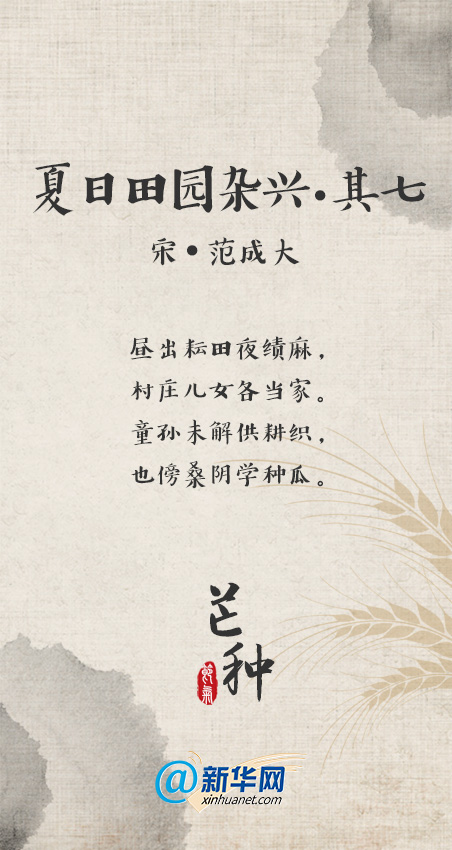 夏日田园杂兴·其七
宋·范成大
昼出耘田夜绩麻，
村庄儿女各当家。
童孙未解供耕织，
也傍桑阴学种瓜。
芒种
節氣
@新华网
xinhuanet.com